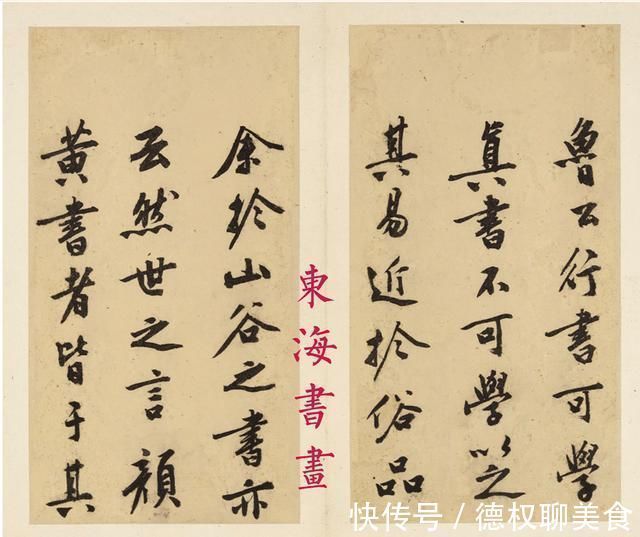 魯公行書可學
眞書不可學以之
其易近於俗品
東海書畫
余於山谷之書亦
云然世之言顏
黃書者皆于其
快传号 / 德权聊美食